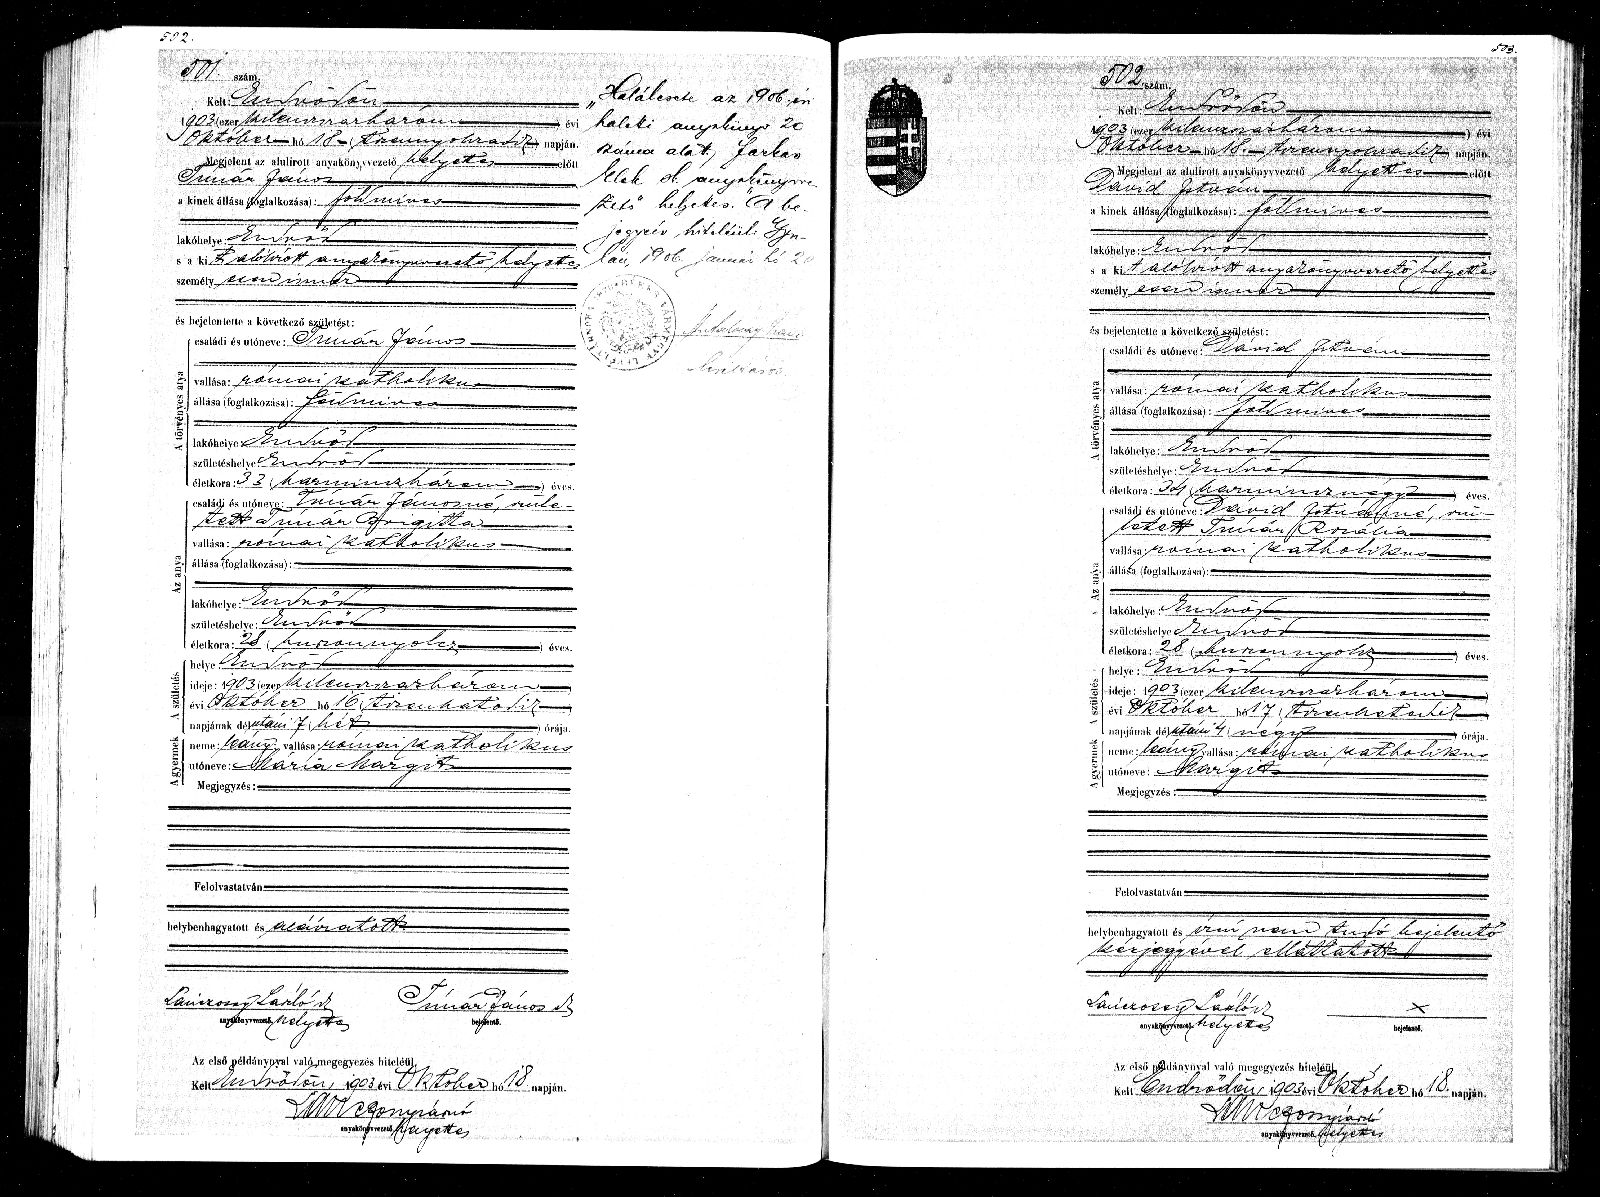 502.
501. szám.
Kelt: Endrődön
1903 (ezer kilenczszázhárom) évi
Október hó 18 (tizennyolczadik) napján.
Megjelent az alulirott anyakönyvvezető helyettes előtt
Tímár János
a kinek állása (foglalkozása): földmives
lakóhelye: Endrőd
s a kit alólirott anyakönyvvezető helyettes
személy esen ismer
és bejelentette a következő születést:
A törvényes atya
családi és utóneve: Tímár János
vallása: római katholikus
állása (foglalkozása): földmives
lakóhelye: Endrőd
születéshelye: Endrőd
életkora: 33 (harminczhárom) éves.
Az anya
családi és utóneve: Tímár Jánosné, szüle-
tett Tímár Borgitta
vallása: római katholikus
állása (foglalkozása):
lakóhelye: Endrőd
születéshelye: Endrőd
életkora: 28 (huszonnyolcz) éves.
A születés
helye: Endrőd
ideje: 1903 (ezer kilenczszázhárom)
évi Október hó 16 (tizenhatodik)
napjának délutáni 7 (hét) órája.
A gyermek
neme: leány, vallása: római katholikus
utóneve: Mária Margit
Megjegyzés:
Felolvastatván
helybenhagyatott és aláiratott
Lánczossy László sk
anyakönyvvezető helyettes
Tímár János sk
bejelentő.
Az első példánynyal való megegyezés hiteléül
Kelt Endrődön, 1903 évi Október hó 18 napján.
anyakönyvvezető helyettes
„Halálesete az 1906. évi
haláli anyakönyv 20
száma alatt. Farkas
Elek sk anyakönyvve-
zető helyettes." A be-
jegyzés hiteléül. Gyu-
lán, 1906. január hó 20
503.
502 szám.
Kelt: Endrődön
1903 (ezer kilenczszázhárom) évi
Október hó 18. (tizennyolczadik) napján.
Megjelent az alulirott anyakönyvvezető helyettes előtt
Dávid István
a kinek állása (foglalkozása): földmives
lakóhelye: Endrőd
s a kit alólirott anyakönyvvezető helyettes
személy esen ismer
és bejelentette a következő születést:
A törvényes atya
családi és utóneve: Dávid István
vallása: római katholikus
állása (foglalkozása): földmives
lakóhelye: Endrőd
születéshelye: Endrőd
életkora: 34 (harmincznégy) éves.
Az anya
családi és utóneve: Dávid Istvánné, szü-
letett Tímár Rozália
vallása: római katholikus
állása (foglalkozása):
lakóhelye: Endrőd
születéshelye: Endrőd
életkora: 28 (huszonnyolcz) éves.
A születés
helye: Endrőd
ideje: 1903 (ezer kilenczszázhárom)
évi Október hó 17 (tizenhetedik)
napjának délutáni 4 (négy) órája.
A gyermek
neme: leány vallása: római katholikus
utóneve: Margit
Megjegyzés:
Felolvastatván
helybenhagyatott és irni nem tudó bejelentő
kézjegyével elláttatott
Lánczossy László sk
anyakönyvvezető helyettes
x
bejelentő.
Az első példánynyal való megegyezés hiteléül
Kelt Endrődön, 1903 évi Október hó 18. napján.
anyakönyvvezető helyettes